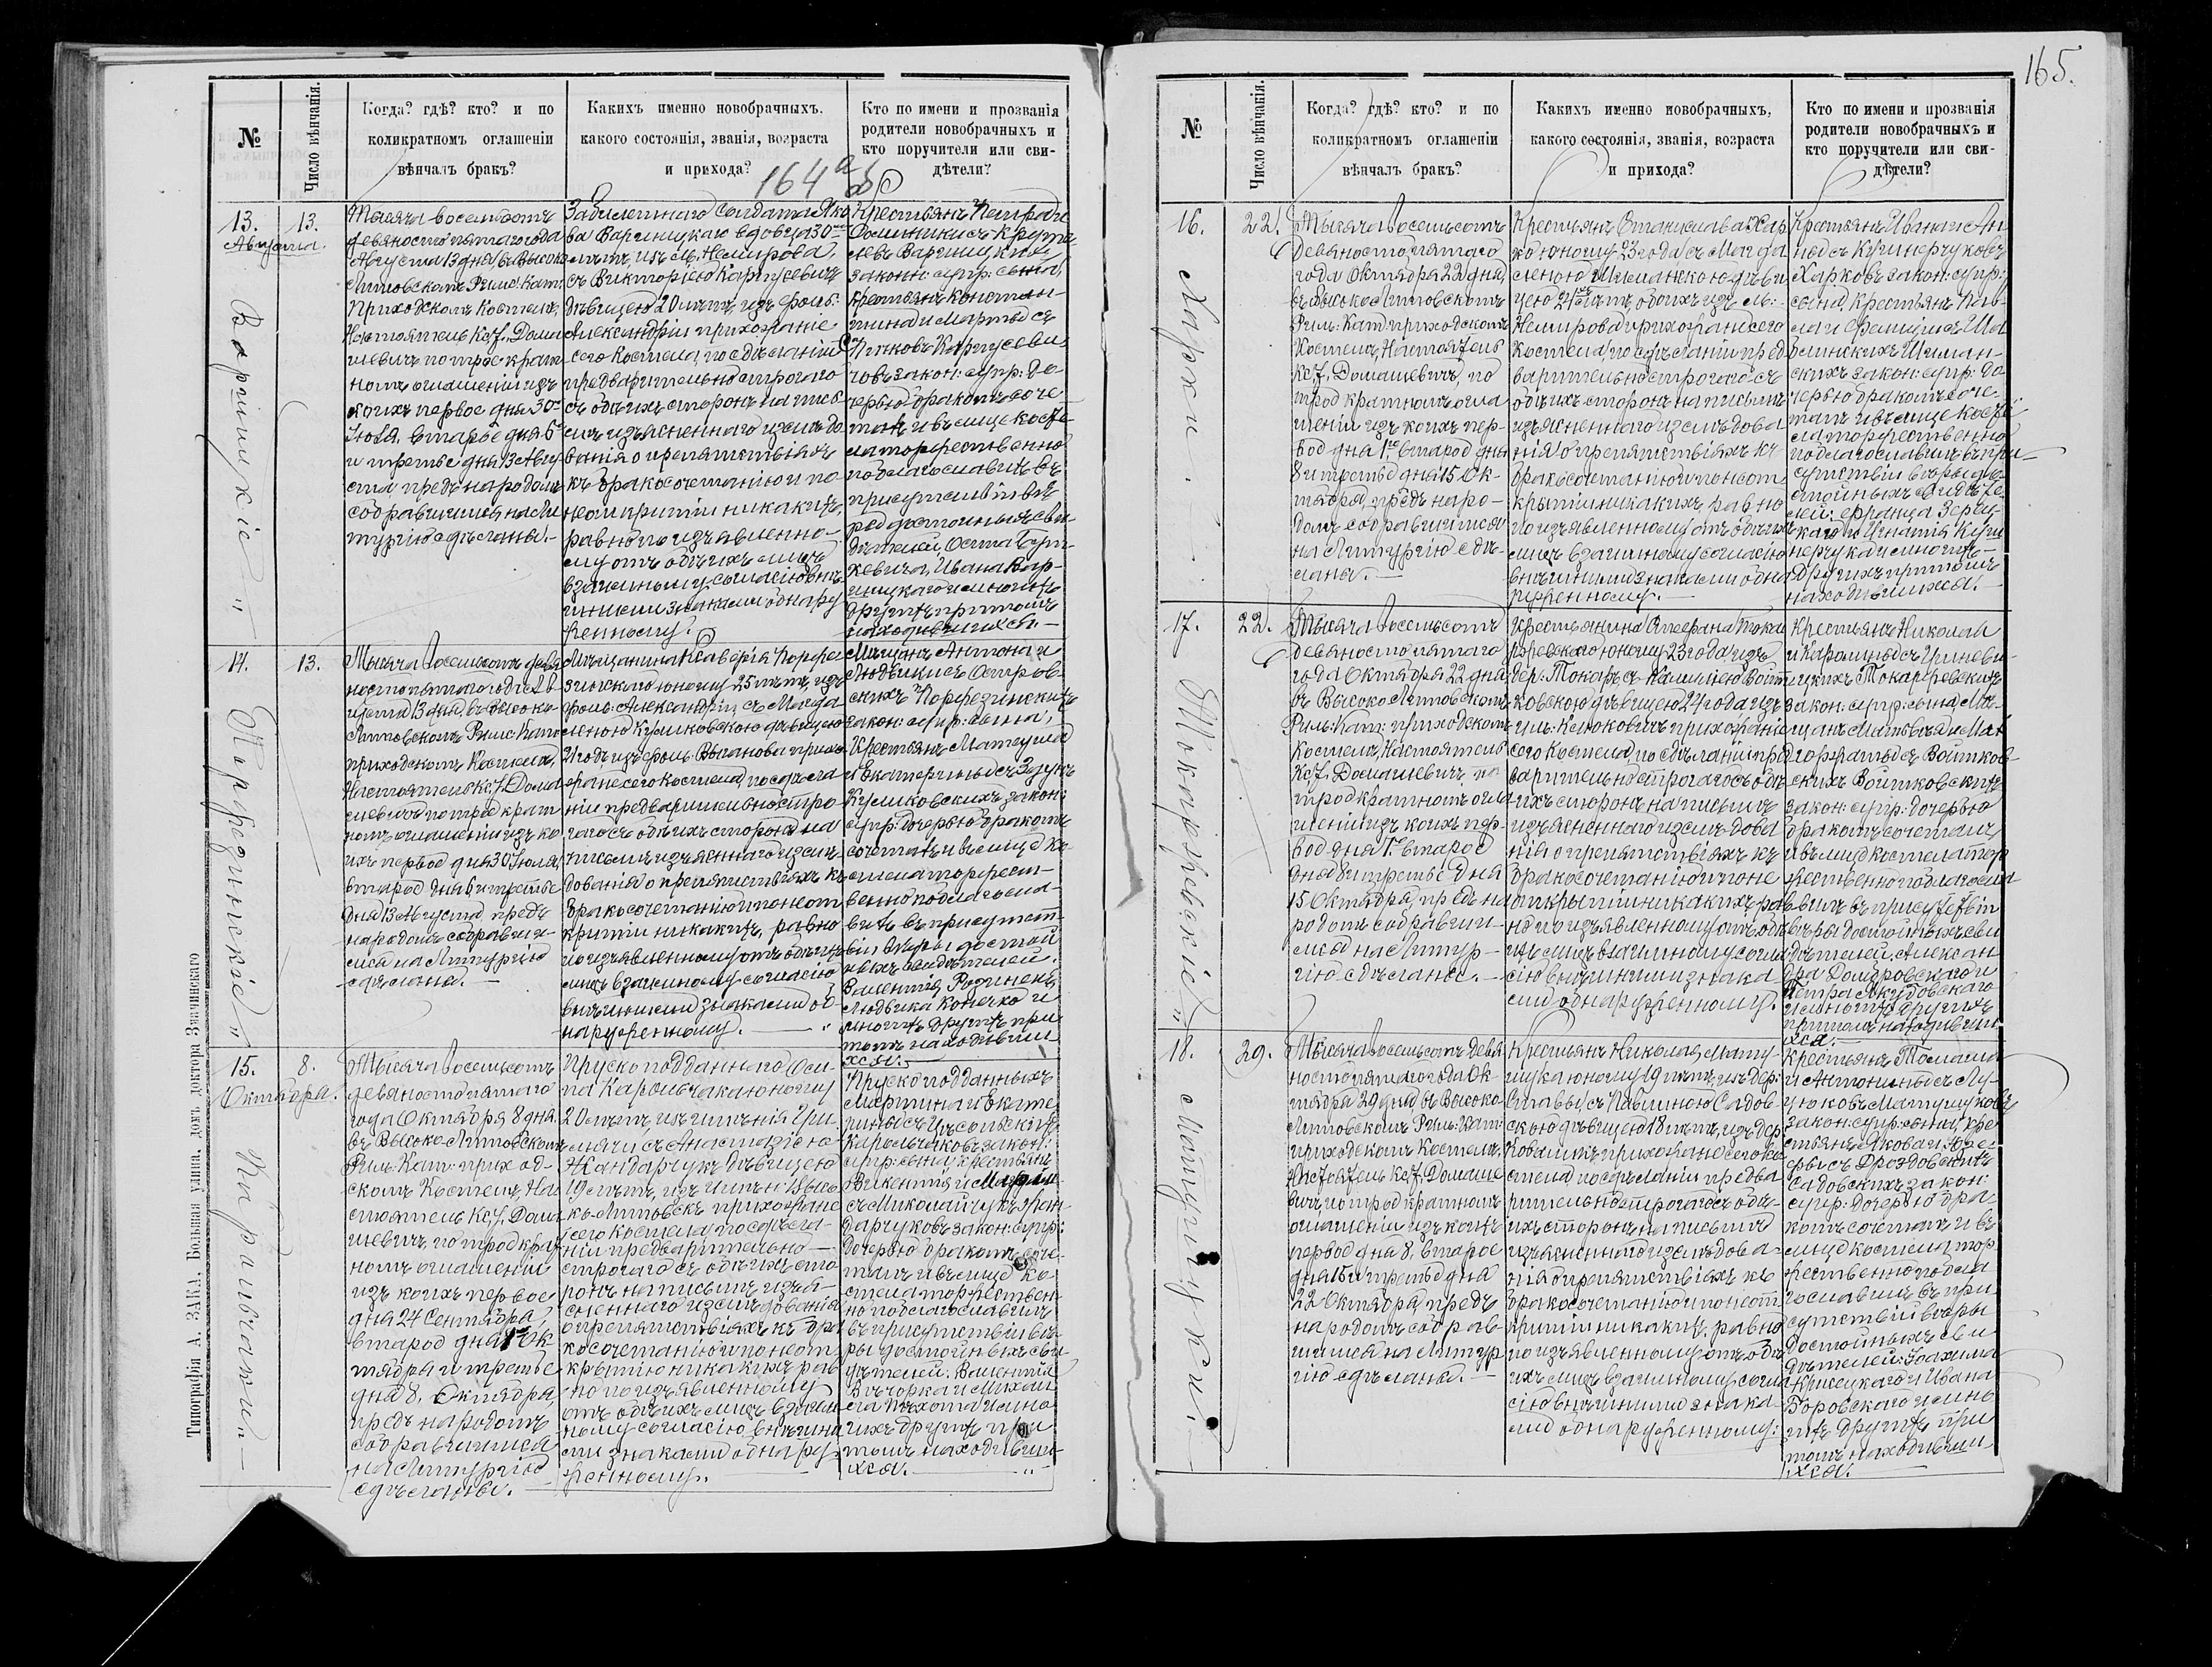 165.
№
Число вѣнчанія.
Когда? гдѣ? кто? и по
коликратномъ оглашеніи
вѣнчалъ бракъ?
Какихъ именно новобрачныхъ,
какого состоянія, званія, возраста
и прихода?
164 а
Кто по имени и прозванія
родители новобрачныхъ и
кто поручители или сви-
дѣтели?
13.
Августа.
13.
Тысяча восемьсотъ
девяносто пятаго года
Августа 13 дня въ Высоко
Литовскомъ Римс: Кат:
Приходскомъ Костелѣ,
Настоятель Ксз. Дома
шевичъ по трое крат
номъ оглашеніи изъ
коихъ первое дня 30
Іюля, второе дня 6
и третье дня 13 Авгу
ста предъ народомъ
собравшимся на Ли
тургію сдѣланы.
Забилетнаго солдата Яко
ва Варшицкаго вдовца 30
лѣтъ, изъ м. Немирова,
съ Викторіею Карпусевичъ
дѣвицею 20 лѣтъ, изъ фоль:
Александріи прихожане
сего Костела, по сдѣланіи
предварительно строгого
съ обѣихъ сторонъ на пись
мѣ изъясненнаго изслѣдо
ванія о препятствіяхъ
къ бракосочетанію и по
неоткрытіи никакихъ,
равно по изъявленно-
му отъ обѣихъ лицъ
взаимному согласію внѣ
шними знаками обнару
женному.
Крестьянъ Петра и
Доминики съ Круте
левъ Варшицкихъ
законн: супр: сына,
крестьянъ Констан-
тина и Марты съ
Карпусеви
човъ закон: супр: до
черью бракомъ соче
талъ и въ лицѣ косте
ла торжественно
поблагословилъ въ
присутствіи вѣ
ры достойныхъ сви
дѣтелей, Осипа
кевича, Ивана Вар-
шицкаго и многихъ
другихъ притомъ
находившихся.
14.
13.
Тысяча восемьсотъ девя
носто пятаго года Ав
густа 13 дня, въ Высоко
Литовскомъ Римс: Кат:
приходскомъ Костелѣ,
Настоятель Ксз. Дома
шевичъ по трое крат
номъ оглашеніи изъ ко
ихъ первое дня 30 Іюля,
второе дня 6 и третье
дня 13 Августа, предъ
народомъ собравши-
мся на Литургію
сдѣланы.
Мѣщанина Ксаверія Порфе
зинскаго юношу 25 лѣтъ, изъ
фоль: Александріи, съ Магда
леною Куликовскою дѣвицею
изъ фоль: прихо
жане сего Костела, по сдѣла
ніи предварительно стро
гаго съ обѣихъ сторонъ на
письмѣ изъясненнаго изслѣ
дованія о препятствіяхъ къ
бракосочетанію и по неот
крытіи никакихъ, равно
по изъявленному отъ обѣихъ
лицъ взаимному согласію
внѣшними знаками об
наруженному.
Мѣщанъ Антона и
Людвики съ Остров
скихъ Порфезинскихъ
закон: супр: сына,
Крестьянъ Матеуша
и Екатерины съ
Куликовскихъ закон:
супр: дочерью бракомъ
сочеталъ и въ лицѣ ко
стела торжест-
венно поблагосло-
вилъ въ присутст
віи вѣры достой
ныхъ свидѣтелей.
Викентія
Людвика Конечко и
многихъ другихъ при
томъ находивши
хся.
15.
Октября.
8.
Тысяча восемьсотъ
девяносто пятаго
года Октября 8 дня
въ Высоко Литовскомъ
Римс: Кат: приход-
скомъ Костелѣ, На
стоятель Ксз. Дома
шевичъ, по трое крат
номъ оглашеніи
изъ коихъ первое
дня 24 Сентября,
второе дня 1 Ок-
тября и третье
дня 8, Октября,
предъ народомъ
собравшимся
на Литургію
сдѣланы.
Прусkоподданнаго Оси-
па Карольчака юношу
20 лѣтъ, изъ имѣнія
съ Анастазіею
Жандарчукъ дѣвицею
19 лѣтъ, изъ имѣн: Высо
ко-Литовскъ прихожане
сего костела по сдѣла-
ніи предварительно
строгаго съ обѣихъ сто
ронъ на письмѣ изъя-
сненнаго изслѣдованія
о препятствіяхъ къ бра
косочетанію и по неот
крытію никакихъ рав
но по изъявленному
отъ обѣихъ лицъ взаим
ному согласію внѣшни
ми знаками обнару
женному.
Прускоподданныхъ
Мартина и Екате
рины съ
Карольчаковъ закон:
супр: сына, крестьянъ
Викентія и
съ Николайчукъ Жан
дарчуковъ закон: супр:
дочерью бракомъ соче
талъ и въ лицѣ ко-
стела торжествен-
но поблагословилъ
въ присутствіи вѣ-
ры достойныхъ сви-
дѣтелей. Викентія
и Михаи
ла и мно
гихъ другихъ при
томъ находивши-
хся.
Варшицкіе
Порфезинскіе
Карольчаки
Типографія А. ЗАКА. Большая улица, домъ доктора Званинскаго
№
Число вѣнчанія.
Когда? гдѣ? кто? и по
коликратномъ оглашеніи
вѣнчалъ бракъ?
Какихъ именно новобрачныхъ,
какого состоянія, званія, возраста
и прихода?
Кто по имени и прозванія
родители новобрачныхъ и
кто поручители или сви-
дѣтели?
16.
22.
Харки
Тысяча восемьсотъ
девяносто пятаго
года Октября 22 дня,
въ Высоко Литовскомъ
Римс: Кат: приходскомъ
Костелѣ, Настоятель
Ксз. Домашевичъ, по
трое кратномъ огла
шеніи изъ коихъ пер-
вое дня 1, второе дня
8 и третье дня 15 Ок-
тября, предъ наро-
домъ собравшимся
на Литургію сдѣ-
ланы.
Крестьянъ Станислава Хар
ко юношу 23 года съ Магда
леною Шиманскою дѣви
цею 21 лѣтъ, обоихъ изъ м:
Немирова прихожан сего
Костела, по сдѣланіи пред
варительно строгаго съ
обѣихъ сторонъ на письмѣ
изъясненнаго изслѣдова
нія о препятствіяхъ къ
бракосочетанію и по неот
крытіи никакихъ равно
по изъявленному отъ обѣихъ
лицъ взаимному согласію
внѣшними знаками обна
руженному.
Крестьянъ Ивана и Ан
ны съ Кушнерчуковъ
Харковъ закон: супр:
сына, крестьянъ Пав
ла и
Шиман-
скихъ закон: супр: до
черью бракомъ соче-
талъ и въ лицѣ косте
ла торжественно
поблагословилъ въ при-
сутствіи вѣры до-
стойныхъ свидѣте
лей: Франца
и Игнатія Куш
нерчука и многихъ
другихъ притомъ
находившихся.
17.
22.
Токаржевскіе
Тысяча восемьсотъ
девяносто пятаго
года Октября 22 дня
въ Высоко Литовскомъ
Римс: Кат: приходскомъ
костелѣ, Настоятель
Ксз. Домашевичъ по
трое кратномъ огла
шеніи изъ коихъ пер-
вое дня 1, второе
дня 8 и третье дня
15 Октября, предъ на
родомъ собравши-
мся на Литур-
гію сдѣланы.
Крестьянина Стефана Тока
ржевскаго юношу 23 года изъ
дер: Токары съ Камилею Войт
ковскою дѣвицею 24 года изъ
прихожане
сего Костела, по сдѣланіи пред
варительно строгаго съ обѣ
ихъ сторонъ на письмѣ
изъясненнаго изслѣдова
нія о препятствіяхъ къ
бракосочетанію и по не
открытіи никакихъ рав
но по изъявленному отъ обѣ
ихъ лицъ взаимному согла
сію внѣшними знака-
ми обнаруженному.
Крестьянъ Николая
и Каролины съ Гриневи
цкихъ Токаржевскихъ
закон: супр: сына, Мѣ-
щанъ Матвѣя и Мал
горжаты съ Войтков-
скихъ Войтковскихъ
закон: супр: дочерью
бракомъ сочеталъ
и въ лицѣ костела тор
жественно поблагосло
вилъ въ присутствіи
вѣры достойныхъ сви
дѣтелей, Алексан
дра Домбровскаго и
Петра Якубовскаго
и многихъ другихъ
притомъ находивши
хся.
18.
29.
Матушуки
Тысяча восемьсотъ девя
носто пятаго года Ок
тября 29 дня, въ Высоко
Литовскомъ Римс: Кат:
приходскомъ Костелѣ,
Настоятель Ксз. Домаше
вичъ по трое кратномъ
оглашеніи изъ коихъ
первое дня 8, второе
дня 15 и третье дня
22 Октября, предъ
народомъ собрав-
шимся на Литур
гію сдѣланы.
Крестьянъ Николая Мату-
шука юношу 19 лѣтъ, изъ дер:
Ставы, съ Павлиною Садов
скою дѣвицею 18 лѣтъ, изъ дер:
прихожане сего ко
стела по сдѣланіи предва
рительно строгаго съ обѣ-
ихъ сторонъ на письмѣ
изъясненнаго изслѣдова-
нія о препятствіяхъ къ
бракосочетанію и по неот
крытіи никакихъ, равно
по изъявленному отъ обѣ
ихъ лицъ взаимному согла
сію внѣшними знака-
ми обнаруженному:
Крестьянъ Томаша
и Антонины съ Лу-
цюковъ Матушуковъ
закон: супр: сына, кре
стьянъ Якова и Юзе
фы съ Дроздовскихъ
Садовскихъ закон:
супр: дочерью бра-
комъ сочеталъ и въ
лицѣ костела тор
жественно побла
гословилъ въ при
сутствіи вѣры
достойныхъ сви
дѣтелей: Іоахима
и Ивана
Боровскаго и мно
гихъ другихъ при
томъ находивши
хся.